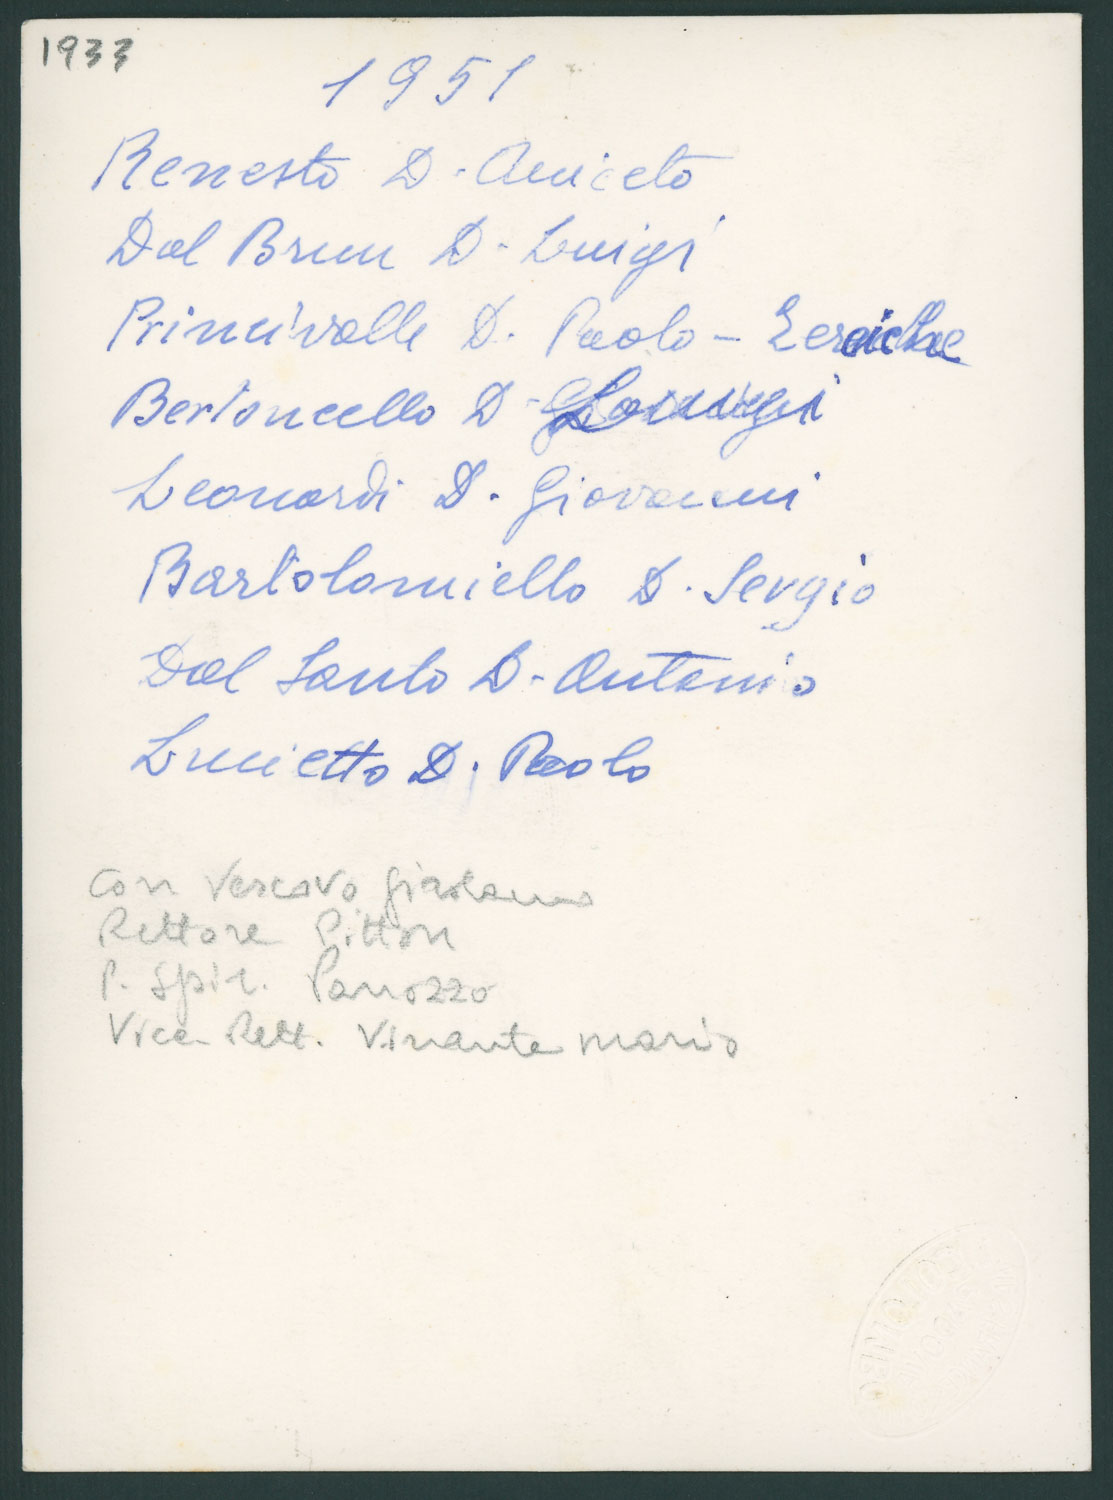 1933
1951
Renesto D. Aniceto
Dal Brun D. Luigi
Princivalle D. Paolo -
Bertoncello D. Luigi
Leonardi D. Giovanni
Bartolomiello D. Sergio
Dal Santo D. Antonio
Lucietto D. Paolo
Con Vescovo Girolamo
Rettore Pitton
P. Spir. Panozzo
Vice Rett. Vinante Mario